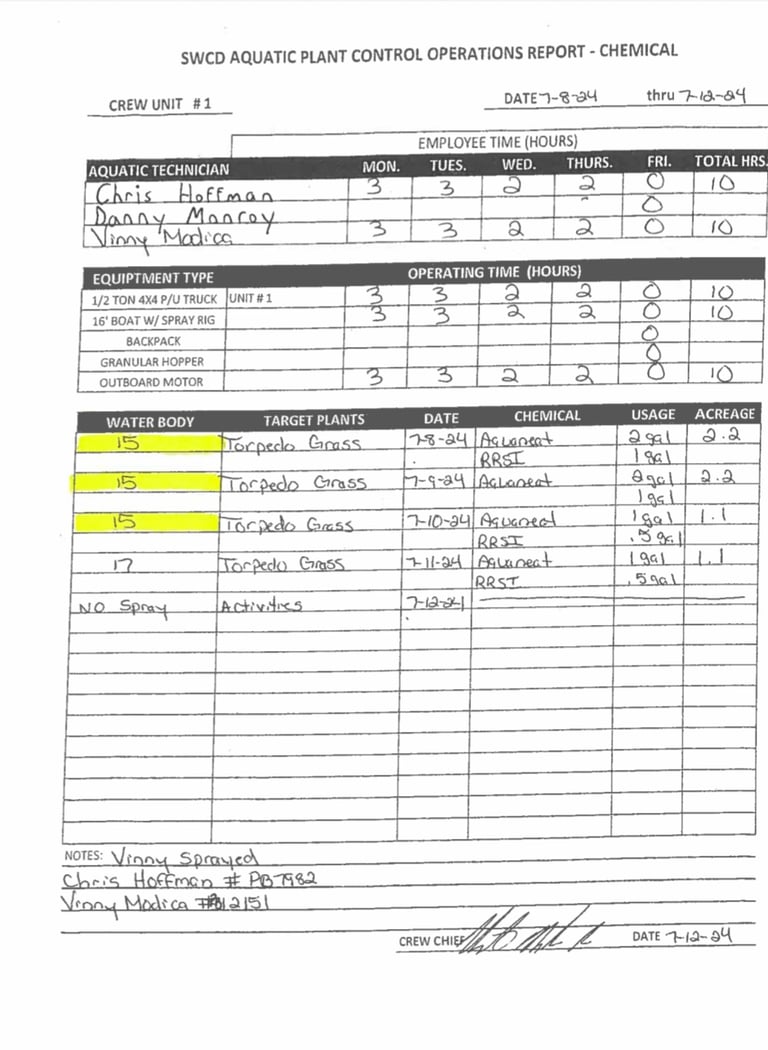 SWCD AQUATIC PLANT CONTROL OPERATIONS REPORT - CHEMICAL
CREW UNIT #1 DATE 7-8-24 thru 7-12-24
EMPLOYEE TIME (HOURS)
AQUATIC TECHNICIAN MON. TUES. WED. THURS. FRI. TOTAL HRS.
Chris Hoffman 3 3 2 2 0 10
Danny Monroy 0
Vinny Modica 3 3 2 2 0 10
EQUIPTMENT TYPE OPERATING TIME (HOURS)
1/2 TON 4X4 P/U TRUCK UNIT #1 3 3 2 2 0 10
16' BOAT W/ SPRAY RIG 3 3 2 2 0 10
BACKPACK 0
GRANULAR HOPPER 0
OUTBOARD MOTOR 3 3 2 2 0 10
WATER BODY TARGET PLANTS DATE CHEMICAL USAGE ACREAGE
15 Torpedo Grass 7-8-24 Aquaneat 2 gal 2.2
RRSI 1 gal
15 Torpedo Grass 7-9-24 Aquaneat 2 gal 2.2
1 gal
15 Torpedo Grass 7-10-24 Aquaneat 1 gal 1.1
RRSI .5 gal
17 Torpedo Grass 7-11-24 Aquaneat 1 gal 1.1
RRSI .5 gal
NO Spray Activities 7-12-24
NOTES: Vinny Sprayed
Chris Hoffman # PB7982
Vinny Modica # 12151
CREW CHIEF DATE 7-12-24